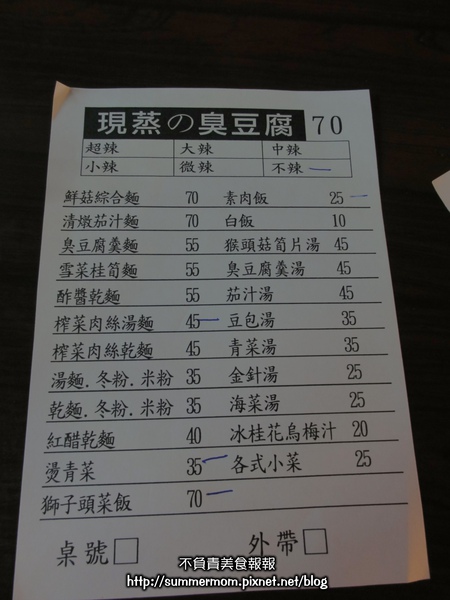 現蒸の臭豆腐 70
超辣 大辣 中辣
小辣 微辣 不辣
鮮菇綜合麵 70 素肉飯 25
清燉茄汁麵 70 白飯 10
臭豆腐羹麵 55 猴頭菇筍片湯 45
雪菜桂筍麵 55 臭豆腐羹湯 45
酢醬乾麵 55 茄汁湯 45
榨菜肉絲湯麵 45 豆包湯 35
榨菜肉絲乾麵 45 青菜湯 35
湯麵.冬粉.米粉 35 金針湯 25
乾麵.冬粉.米粉 35 海菜湯 25
紅醋乾麵 40 冰桂花烏梅汁 20
燙青菜 35 各式小菜 25
獅子頭菜飯 70
桌號□ 外帶□
不負責美食報報
http://summermom.pixnet.net/blog